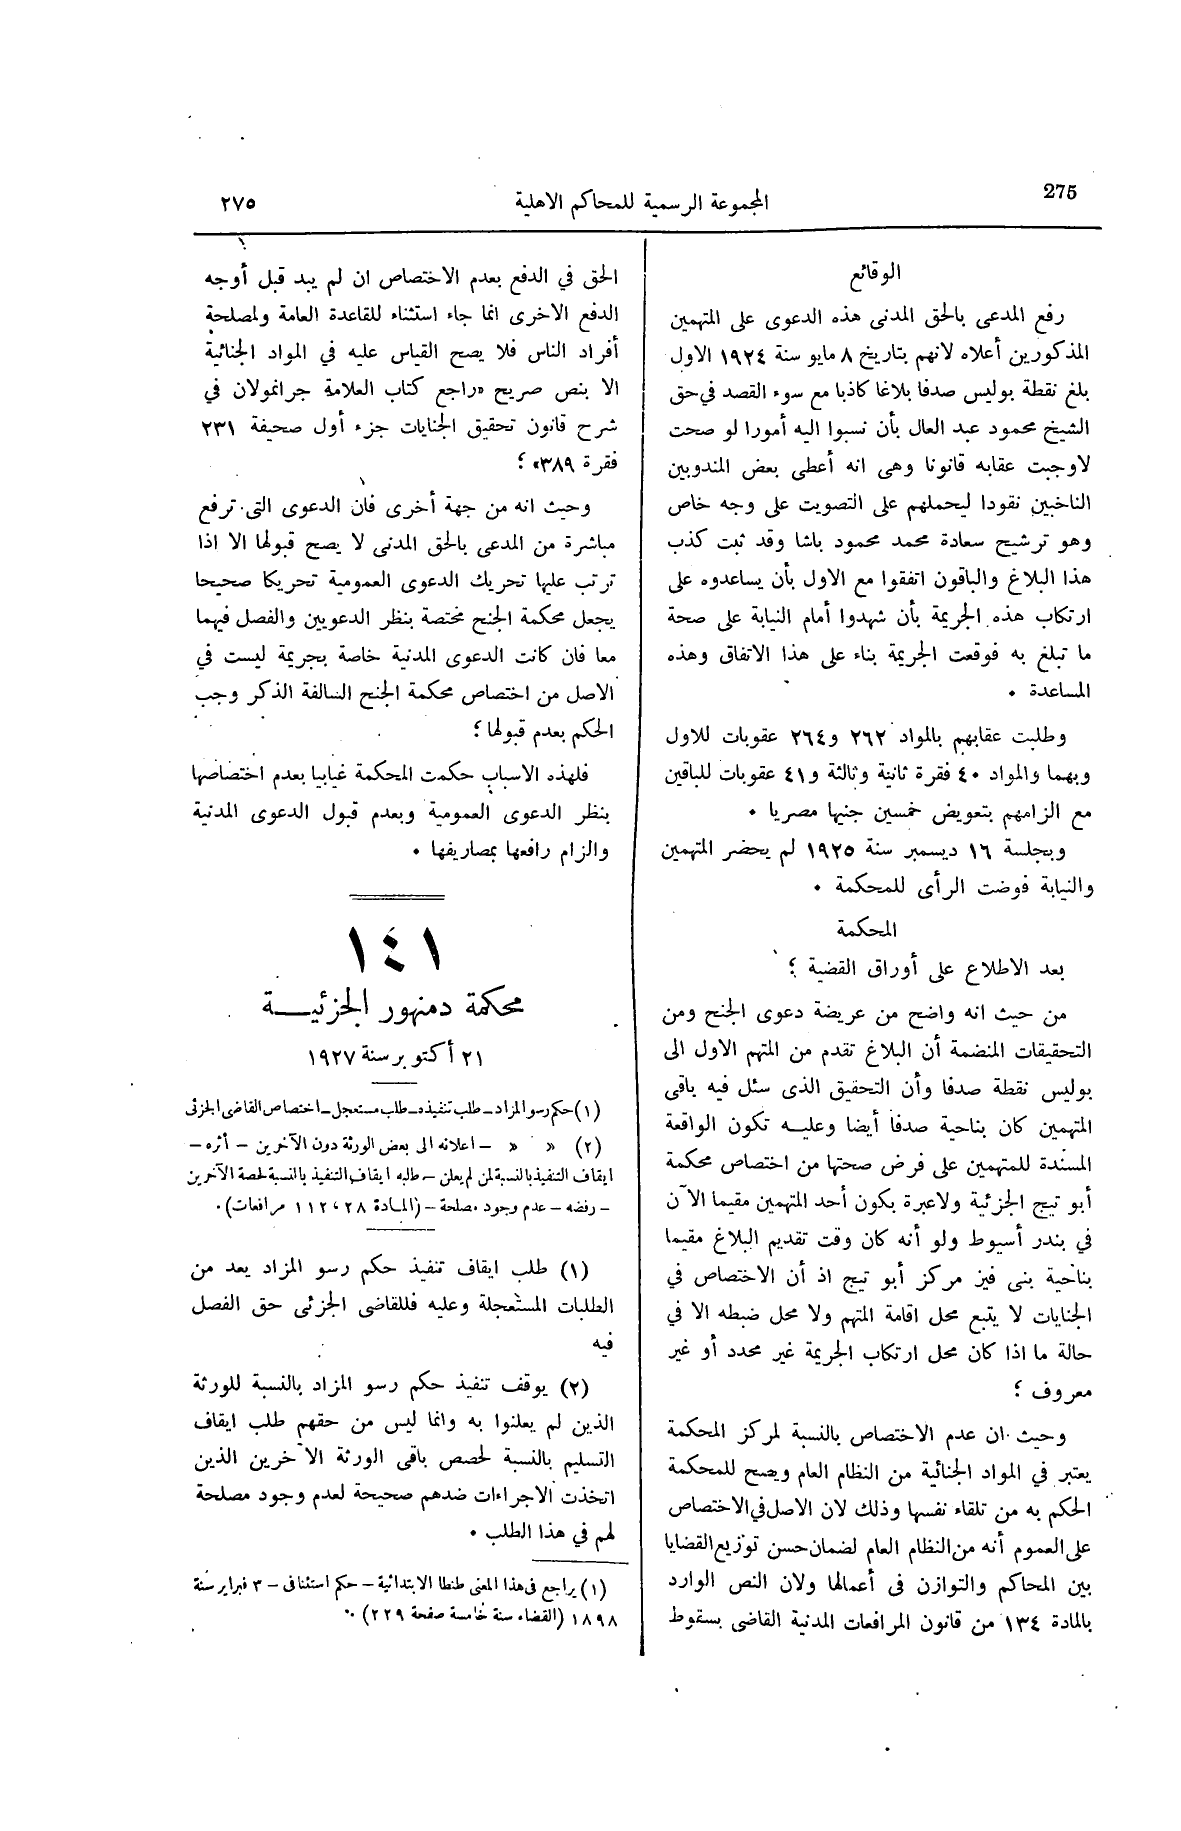 275
المجموعة الرسمية للمحاكم الاهلية
٢٧٥
الوقائع
رفع المدعى بالحق المدنى هذه الدعوى على المتهمين
المذكورين أعلاه لانهم بتاريخ ٨ مايو سنة ١٩٢٤ الاول
بلغ نقطة بوليس صدفا بلاغا كاذبا مع سوء القصد فى حق
الشيخ محمود عبد العال بأن نسبوا اليه أمورا لو صحت
لاوجبت عقابه قانونا وهى انه أعطى بعض المندوبين
الناخبين نقودا ليحملهم على التصويت على وجه خاص
وهو ترشيح سعادة محمد محمود باشا وقد ثبت كذب
هذا البلاغ والباقون اتفقوا مع الاول بأن يساعدوه على
ارتكاب هذه الجريمة بأن شهدوا أمام النيابة على صحة
ما تبلغ به فوقعت الجريمة بناء على هذا الاتفاق وهذه
المساعدة ٠
وطلبت عقابهم بالمواد ٢٦٢ و٢٦٤ عقوبات للاول
وبهما والمواد ٤٠ فقرة ثانية وثالثة و٤١ عقوبات للباقين
مع الزامهم بتعويض خمسين جنيها مصريا ٠
وبجلسة ١٦ ديسمبر سنة ١٩٢٥ لم يحضر المتهمين
والنيابة فوضت الرأى للمحكمة ٠
المحكمة
بعد الاطلاع على أوراق القضية ؛
من حيث انه واضح من عريضة دعوى الجنح ومن
التحقيقات المنضمة أن البلاغ تقدم من المتهم الاول الى
بوليس نقطة صدفا وأن التحقيق الذى سئل فيه باقى
المتهمين كان بناحية صدفا أيضا وعليه تكون الواقعة
المسندة للمتهمين على فرض صحتها من اختصاص محكمة
أبو تيج الجزئية ولاعبرة بكون أحد المتهمين مقيما الآن
في بندر أسيوط ولو أنه كان وقت تقديم البلاغ مقيما
بناحية بنى فيز مركز أبو تيج اذ أن الاختصاص في
الجنايات لا يتبع محل اقامة المتهم ولا محل ضبطه الا في
حالة ما اذا كان محل ارتكاب الجريمة غير محدد أو غير
معروف ؛
وحيث ان عدم الاختصاص بالنسبة لمركز المحكمة
يعتبر في المواد الجنائية من النظام العام ويصح للمحكمة
الحكم به من تلقاء نفسها وذلك لان الاصل فى الاختصاص
على العموم أنه من النظام العام لضمان حسن توزيع القضايا
بين المحاكم والتوازن فى أعمالها ولان النص الوارد
بالمادة ١٣٤ من قانون المرافعات المدنية القاضى بسقوط
الحق في الدفع بعدم الاختصاص ان لم يبد قبل أوجه
الدفع الاخرى انما جاء استثناء للقاعدة العامة ولمصلحة
أفراد الناس فلا يصح القياس عليه في المواد الجنائية
الا بنص صريح «راجع كتاب العلامة جرانمولان في
شرح قانون تحقيق الجنايات جزء أول صحيفة ٢٣١
فقرة ٣٨٩» ؛
وحيث انه من جهة أخرى فان الدعوى التى ترفع
مباشرة من المدعى بالحق المدنى لا يصح قبولها الا اذا
ترتب عليها تحريك الدعوى العمومية تحريكا صحيحا
يجعل محكمة الجنح مختصة بنظر الدعويين والفصل فيهما
معا فان كانت الدعوى المدنية خاصة بجريمة ليست في
الاصل من اختصاص محكمة الجنح السالفة الذكر وجب
الحكم بعدم قبولها ؛
فلهذه الاسباب حكمت المحكمة غيابيا بعدم اختصاصها
بنظر الدعوى العمومية وبعدم قبول الدعوى المدنية
والزام رافعها بمصاريفها ٠
١٤١
محكمة دمنهور الجزئيـــة
٢١ أكتوبر سنة ١٩٢٧
(١) حكم رسو المزاد – طلب تنفيذه – طلب مستعجل – اختصاص القاضى الجزئى
(٢) » » – اعلانه الى بعض الورثة دون الآخرين – أثره –
ايقاف التنفيذ بالنسبة لمن لم يعلن – طلبه ايقاف التنفيذ بالنسبة لحصة الآخرين
– رفضه – عدم وجود مصلحة – (المادة ٢٨ ، ١١٢ مرافعات) ٠
(١) طلب ايقاف تنفيذ حكم رسو المزاد يعد من
الطلبات المستعجلة وعليه فللقاضى الجزئى حق الفصل
فيه
(٢) يوقف تنفيذ حكم رسو المزاد بالنسبة للورثة
الذين لم يعلنوا به وانما ليس من حقهم طلب ايقاف
التسليم بالنسبة لحصص باقى الورثة الآخرين الذين
اتخذت الاجراءات ضدهم صحيحة لعدم وجود مصلحة
لهم في هذا الطلب ٠
(١) يراجع فى هذا المعنى طنطا الابتدائية – حكم استئنافى – ٣ فبراير سنة
١٨٩٨ (القضاء سنة خامسة صفحة ٢٢٩) ٠